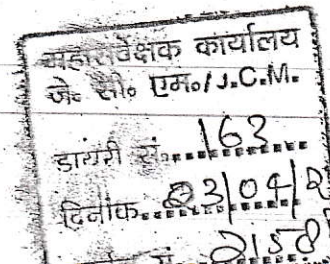 महासर्वेक्षक कार्यालय
जे० सी० एम०/J.C.M.
डायरी सं. 162
दिनांक 23/04/2
सं. 2158